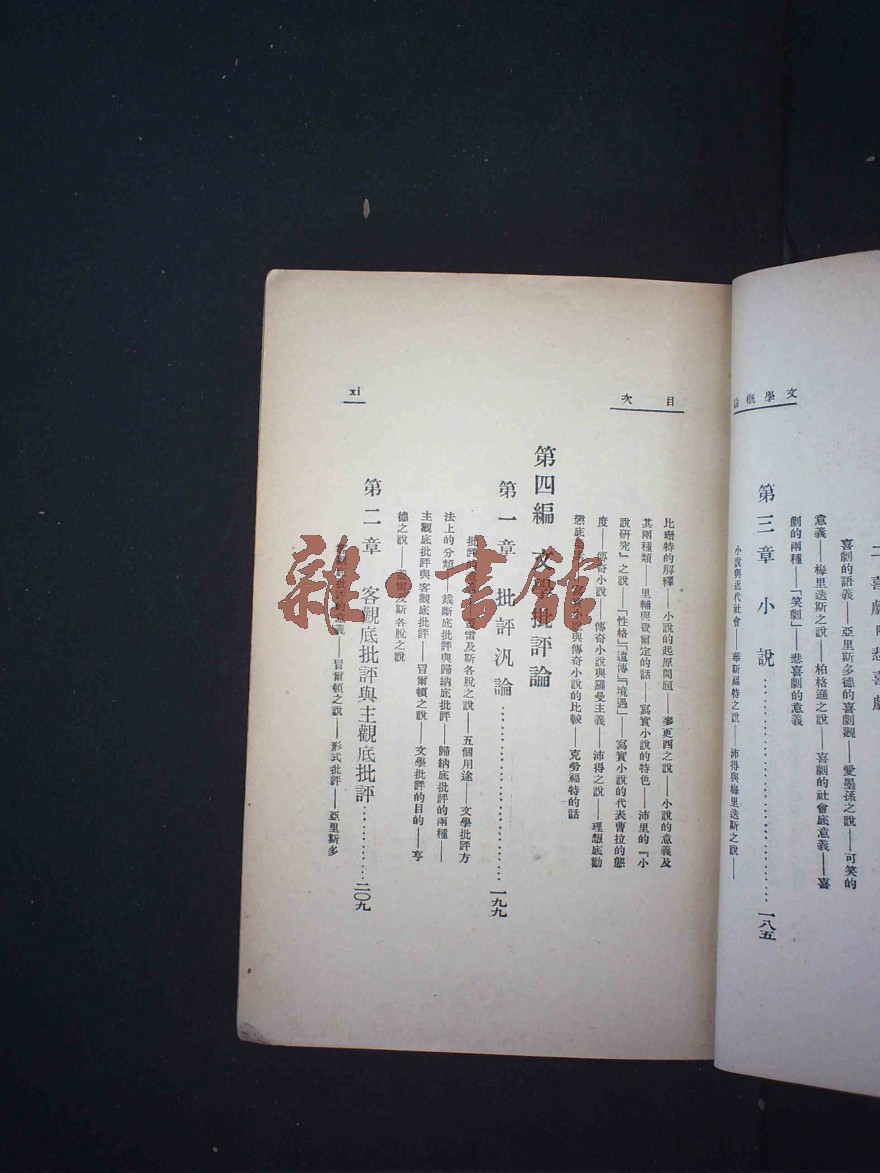 文學概論
二 喜劇
喜劇的語義——亞里斯多德的喜劇觀——愛墨孫之說——可笑的
意義——梅里迭斯之說——柏格遜之說——喜劇的社會底意義——喜
劇的兩種——「笑劇」——悲喜劇的意義
第三章 小說…………一八五
小說與近代社會——華斯福特之說——沛得與梅里迭斯之說——
目次
比珊特的解釋——小說的起原問題——麥更西之說——小說的意義及
其兩種類——里輔與費爾定的話——寫實小說的特色——沛里的『小
說研究』之說——「性格」「遺傳」「境遇」——寫實小說的代表曹拉的態
度——傳奇小說——傳奇小說與羅曼主義——沛得之說——理想底勸
懲底小說與傳奇小說的比較——克勞福特的話
第四編 文學批評論
第一章 批評汎論…………一九九
批評的雷及斯各脫之說——五個用途——文學批評方
法上的分類——裁斷底批評與歸納底批評——歸納底批評的兩種——
主觀底批評與客觀底批評——冒爾頓之說——文學批評的目的——亨
德之說——雷及斯各脫之說
第二章 客觀底批評與主觀底批評…………二〇九
批評的意義——冒爾頓之說——形式批評——亞里斯多
xi
雜·書館